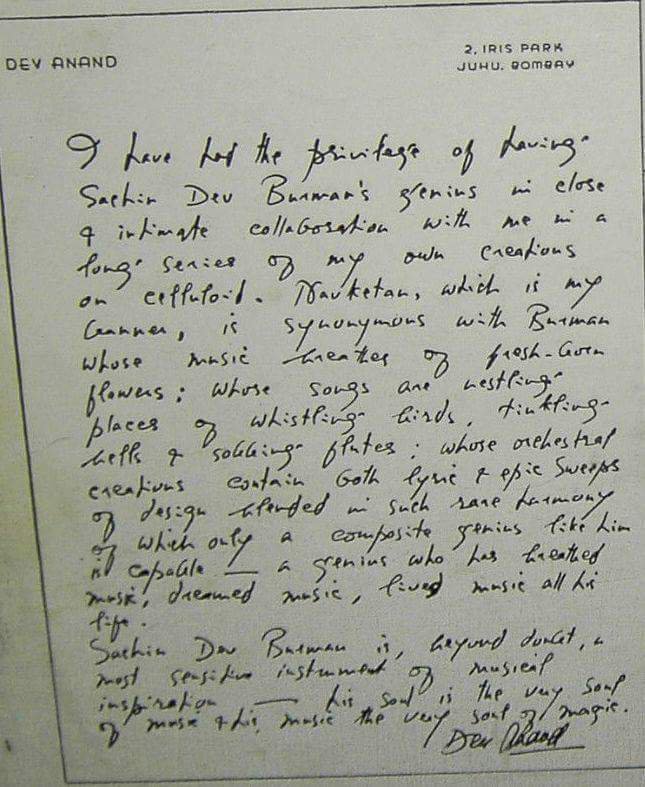 DEV ANAND
2, IRIS PARK
JUHU, BOMBAY
I have had the privilege of having
Sachin Dev Burman's genius in close
& intimate collaboration with me in a
long series of my own creations
on celluloid. Navketan, which is my
banner, is synonymous with Burman
whose music breathes of fresh-born
flowers; whose songs are nestling
places of whistling birds, tinkling
bells & sobbing flutes; whose orchestral
creations contain both lyric & epic sweeps
of design blended in such rare harmony
of which only a composite genius like him
is capable — a genius who has breathed
music, dreamed music, lived music all his
life.
Sachin Dev Burman is, beyond doubt, a
most sensitive instrument of musical
inspiration — his soul is the very soul
of music & his music the very soul of magic.
Dev Anand